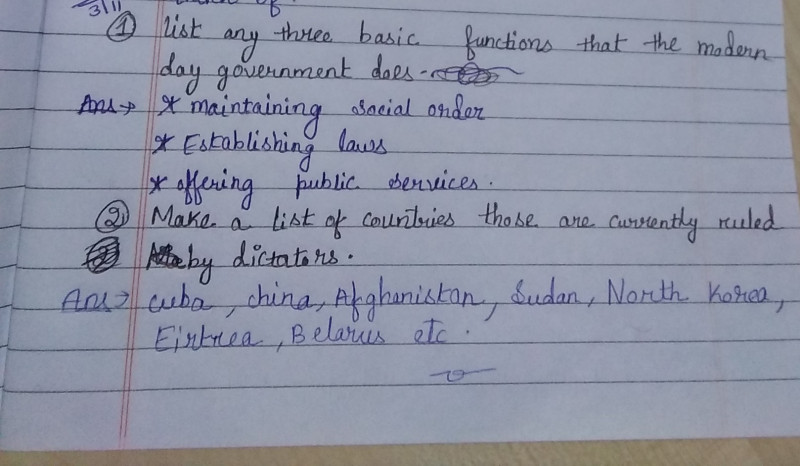 3/11 of
① list any three basic functions that the modern
day government does -
Ans → * maintaining social order
* Establishing laws
* offering public services.
② Make a list of countries those are currently ruled
by dictators.
Ans → cuba, china, Afghanistan, Sudan, North Korea,
Eirtrea, Belarus etc.